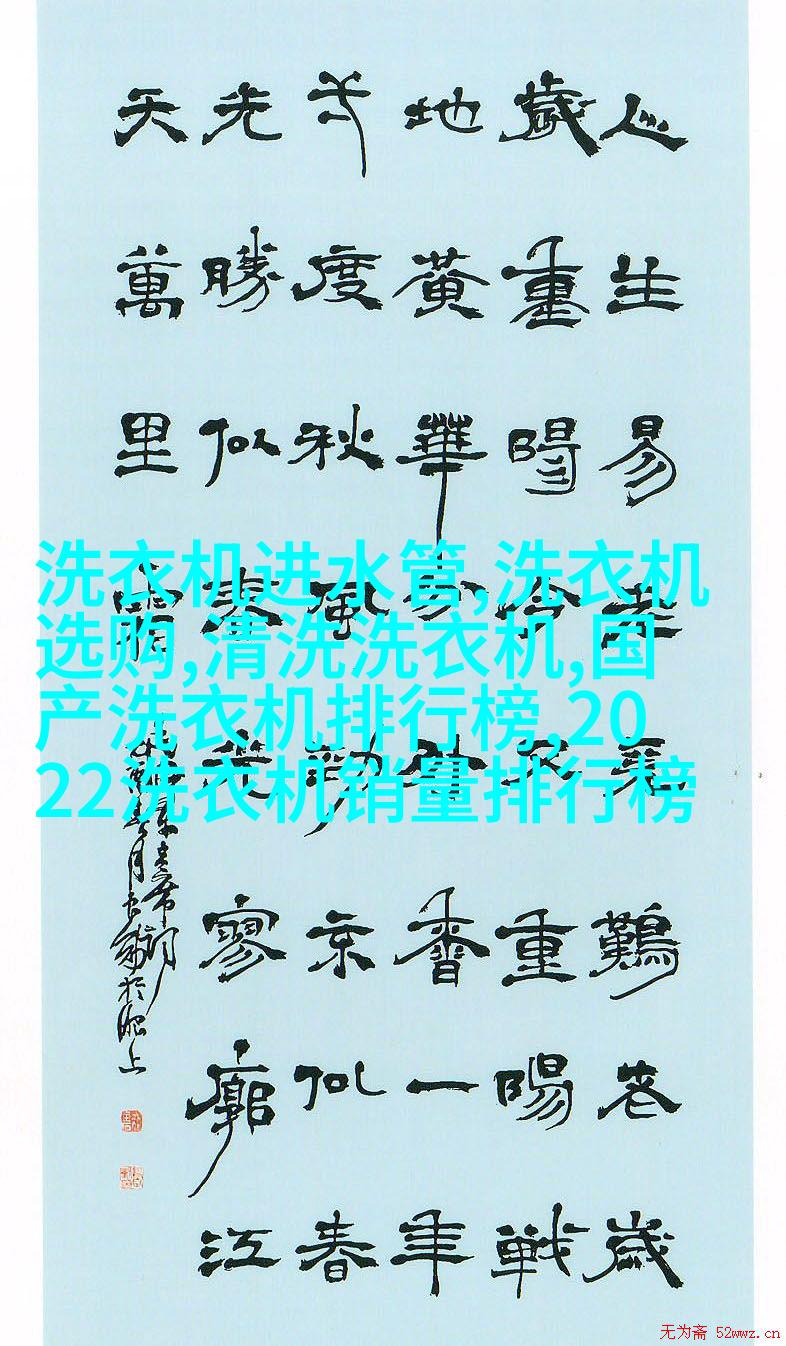 人生易老天難老歲
歲重陽今又重陽戰
地黃華分外香一年
度秋風勁似春
光勝似春光寥廓江
天萬里霜
洗衣机进水管,洗衣机
选购,清洗洗衣机,国
产洗衣机排行榜,20
22洗衣机销量排行榜
无为斋 52wwz.cn